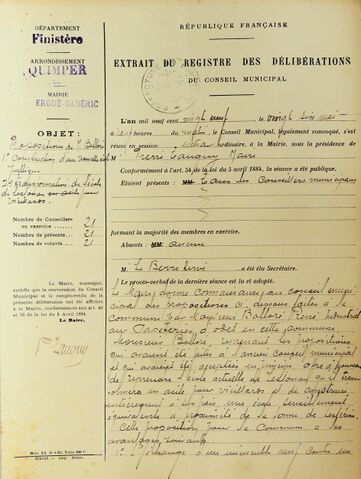 DÉPARTEMENT
Finistère
ARRONDISSEMENT
QUIMPER
MAIRIE
ERGUÉ-GABÉRIC
OBJET :
Proposition de M. Bolloré
1° Construction d'une nouvelle école
publique
2° transformation de l'école
de Lestonan en asile pour
vieillards.
Nombre de Conseillers
en exercice . . . 21
Nombre de présents . 21
Nombre de votants . 21
Le Maire, soussigné,
certifie que la convocation du Conseil
Municipal et le compte-rendu de la
présente délibération ont été affichés
et 56 de la loi du 5 Avril 1884.
Le Maire,
P. Tanguy
RÉPUBLIQUE FRANÇAISE
EXTRAIT DU REGISTRE DES DÉLIBÉRATIONS
DU CONSEIL MUNICIPAL
L'an mil neuf cent vingt neuf le vingt six mai
à heures du matin, le Conseil Municipal, légalement convoqué, s'est
réuni en session ordinaire, à la Mairie, sous la présidence de
M. Pierre Tanguy Maire
Conformément à l'art. 54 de la loi du 5 avril 1884, la séance a été publique.
Étaient présents : MM. Tous les Conseillers municipaux
formant la majorité des membres en exercice.
Absents : MM. aucun
M. Le Berre a été élu Secrétaire.
Le procès-verbal de la dernière séance est lu et adopté.
Le Maire donne connaissance au conseil muni-
cipal des propositions ci-dessous faites à la
commune par Monsieur Bolloré René industriel
aux Papeteries d'Odet en cette commune.
Monsieur Bolloré, reprenant les propositions
qui avaient été faites à l'ancien conseil municipal
et qui avaient été acceptées en
de reprendre l'école actuelle de Lestonan qu'il trans-
formera en asile pour vieillards et de construire
entièrement à ses frais, une école sensiblement
équivalente à proximité de la ferme de
Cette proposition pour la Commune a les
avantages suivants :
1° échange d'un immeuble neuf contre un